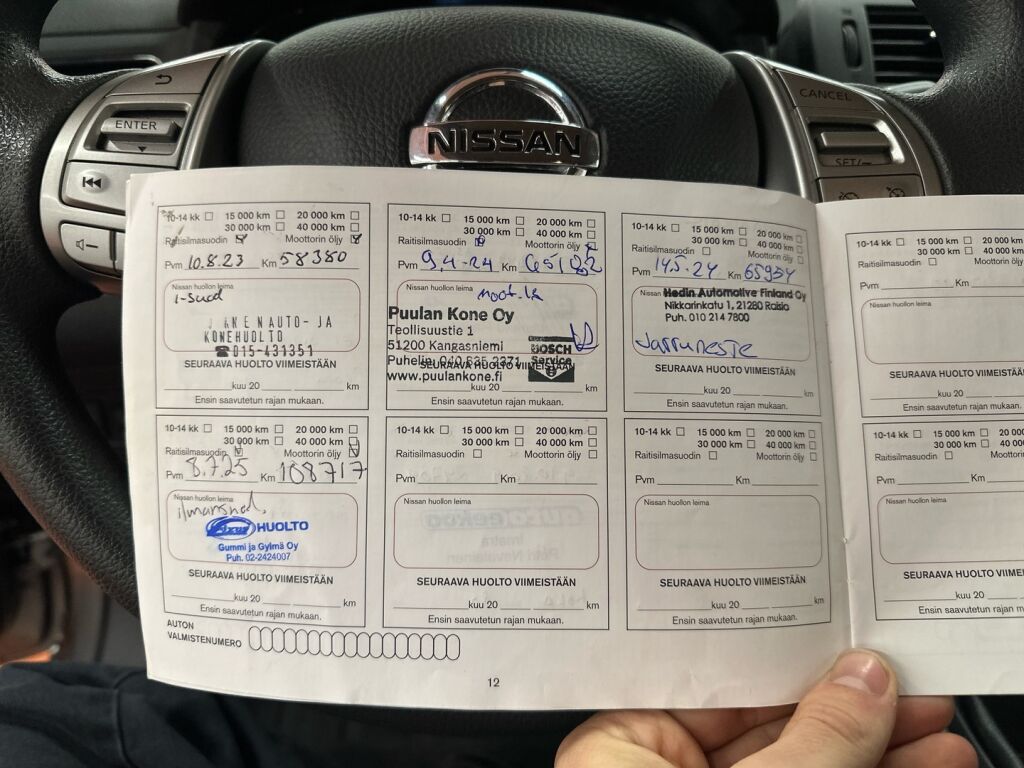 ENTER
CANCEL
SET/−
NISSAN
10-14 kk 15 000 km 20 000 km
30 000 km 40 000 km
Raitisilmasuodin Moottorin öljy
Pvm 10.8.23 Km 58380
i-suod
KONEHUOLTO
015-431351
SEURAAVA HUOLTO VIIMEISTÄÄN
kuu 20 km
Ensin saavutetun rajan mukaan.
10-14 kk 15 000 km 20 000 km
30 000 km 40 000 km
Raitisilmasuodin Moottorin öljy
Pvm 9.4-24 Km 65182
Nissan huollon leima
Puulan Kone Oy
Teollisuustie 1
51200 Kangasniemi
Puhelin 040 835 2371
www.puulankone.fi
BOSCH
Service
SEURAAVA HUOLTO VIIMEISTÄÄN
kuu 20 km
Ensin saavutetun rajan mukaan.
10-14 kk 15 000 km 20 000 km
30 000 km 40 000 km
Raitisilmasuodin Moottorin öljy
Pvm 14.5-24 Km 65954
Hedin Automotive Finland Oy
Nikkarinkatu 1, 21280 Raisio
Puh. 010 214 7800
Jarruneste
SEURAAVA HUOLTO VIIMEISTÄÄN
kuu 20 km
Ensin saavutetun rajan mukaan.
10-14 kk 15 000 km 20 000
30 000 km 40 000
Raitisilmasuodin Moottorin
Pvm Km
Nissan huollon leima
SEURAAVA HUOLTO VIIMEISTÄÄN
kuu 20
Ensin saavutetun rajan mukaan.
10-14 kk 15 000 km 20 000 km
30 000 km 40 000 km
Raitisilmasuodin Moottorin öljy
Pvm 8.7.25 Km 108717
Nissan huollon leima
HUOLTO
Gummi ja Gylmä Oy
Puh. 02-2424007
SEURAAVA HUOLTO VIIMEISTÄÄN
kuu 20 km
Ensin saavutetun rajan mukaan.
10-14 kk 15 000 km 20 000 km
30 000 km 40 000 km
Raitisilmasuodin Moottorin öljy
Pvm Km
Nissan huollon leima
SEURAAVA HUOLTO VIIMEISTÄÄN
kuu 20 km
Ensin saavutetun rajan mukaan.
10-14 kk 15 000 km 20 000 km
30 000 km 40 000 km
Raitisilmasuodin Moottorin öljy
Pvm Km
Nissan huollon leima
SEURAAVA HUOLTO VIIMEISTÄÄN
kuu 20 km
Ensin saavutetun rajan mukaan.
10-14 kk 15 000 km 20 000
30 000 km 40 000
Raitisilmasuodin Moottorin
Pvm Km
Nissan huollon leima
SEURAAVA HUOLTO VIIMEISTÄÄN
kuu 20
Ensin saavutetun rajan mukaan.
AUTON
VALMISTENUMERO
12